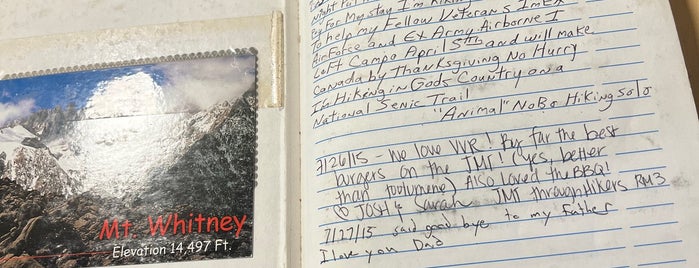 Mt. Whitney
Elevation 14,497 Ft.
Pay For My stay I'm
To help my Fellow Veterans Im Ex
Air Force and Ex Army Airborne I
Left Campo April 5th and will make
Canada by Thanksgiving No Hurry
Im Hiking in Gods Country on a
National Senic Trail
"Animal" NoBo Hiking solo
7/26/15 - We love VVR! By far the best
burgers on the JMT! (yes, better
than toolumene) Also loved the BBQ!
JOSH & Sarah JMT through Hikers RM3
7/27/15 said good bye to my Father
I love you Dad